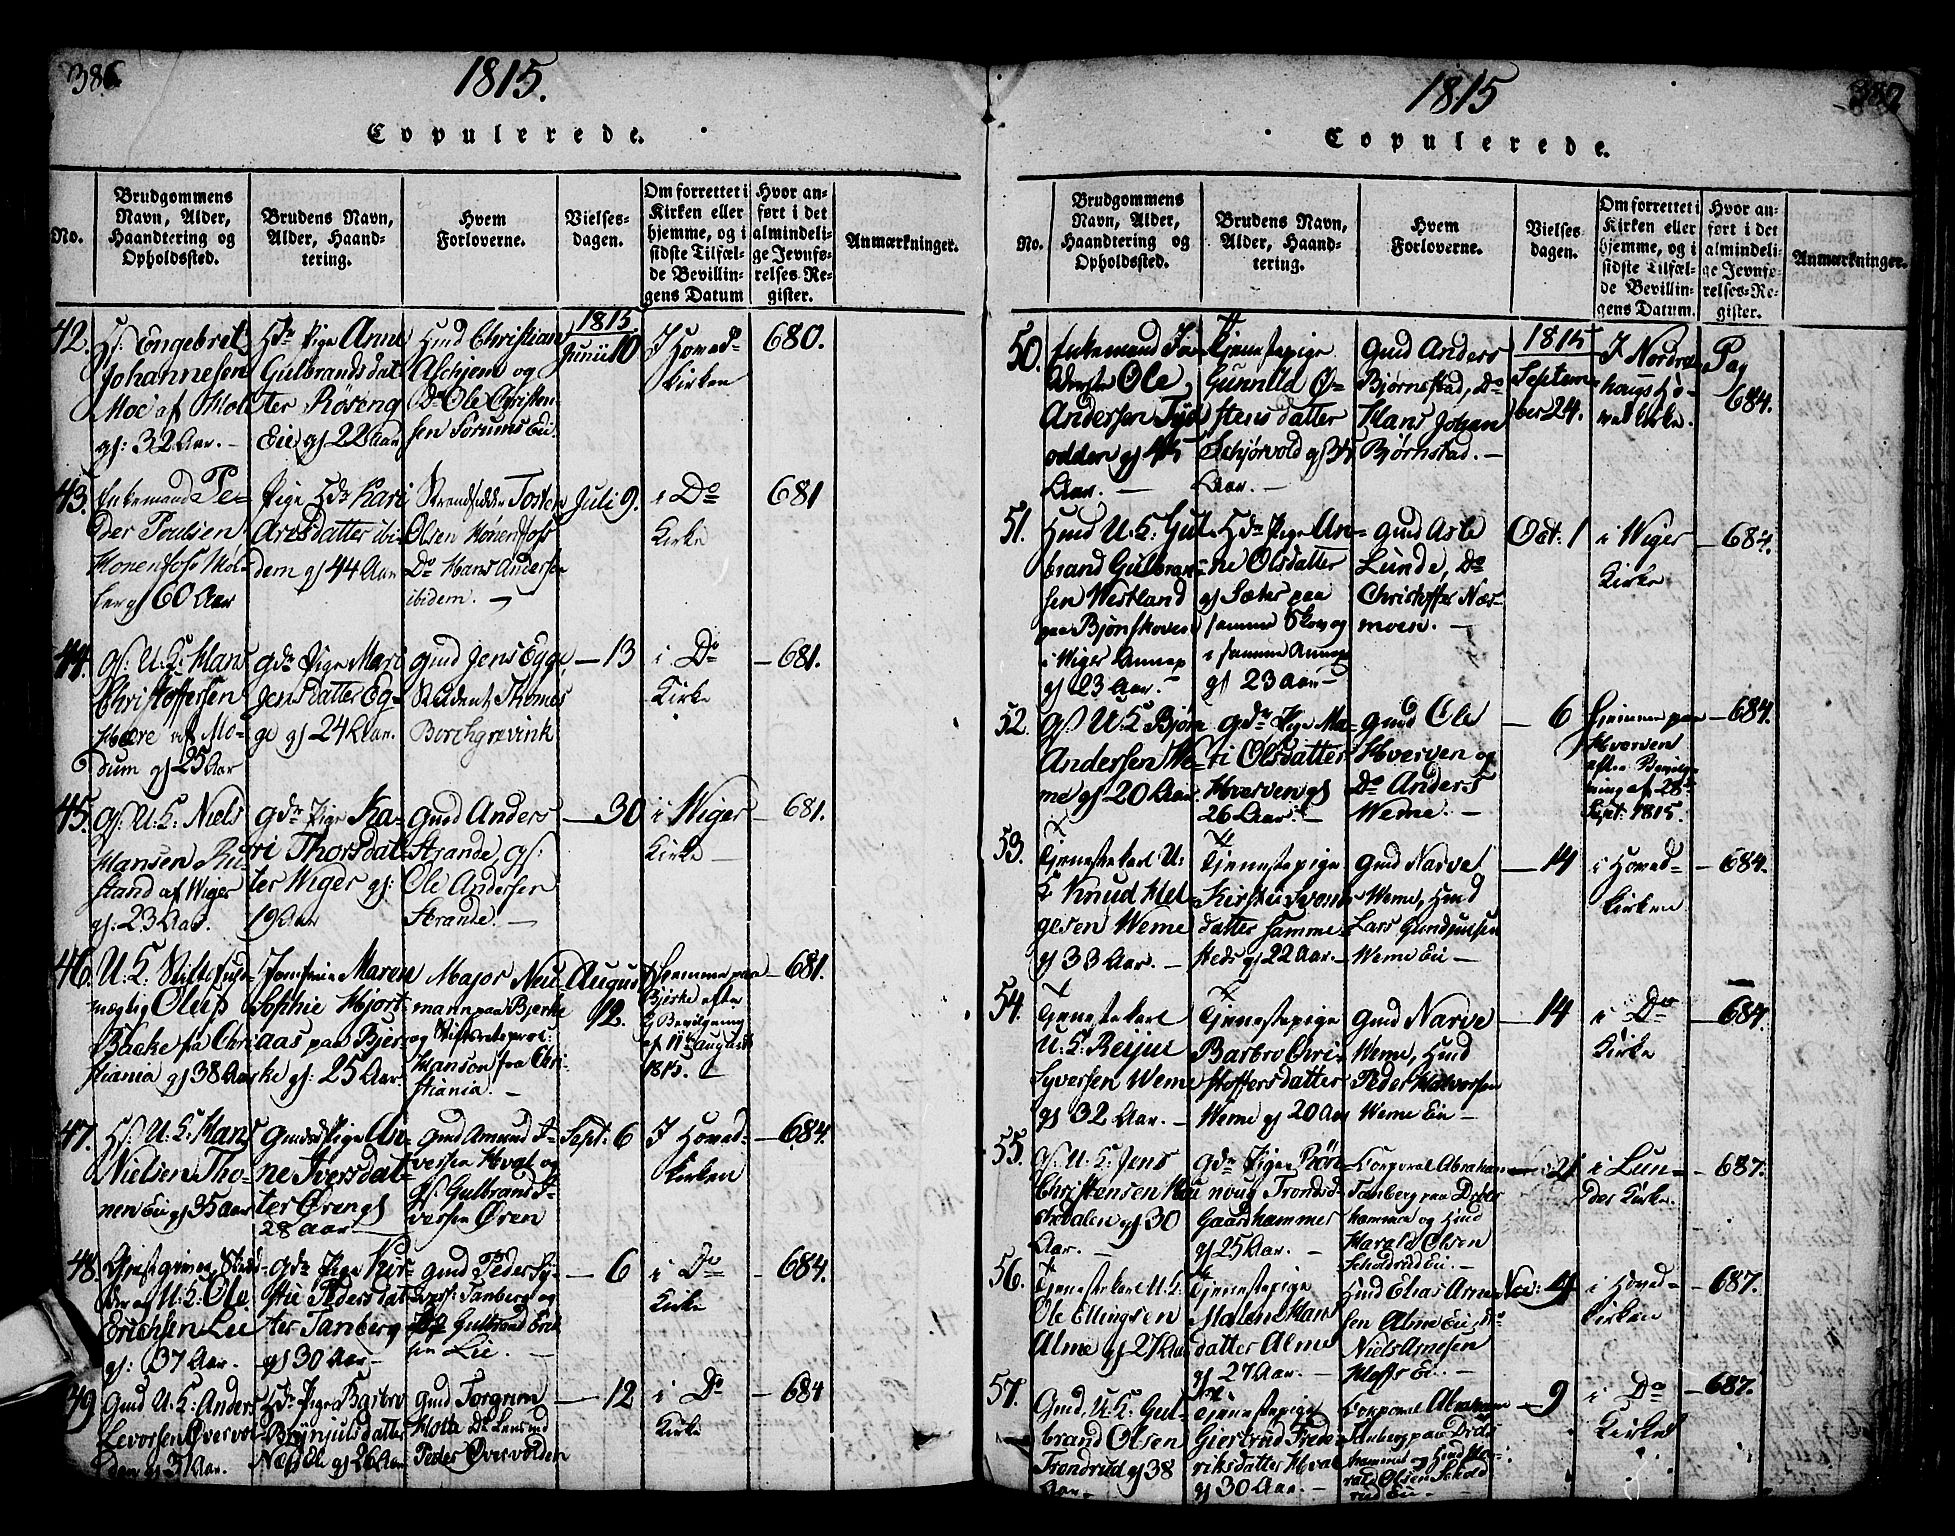 386
1815.
Copulerede.
No.
Brudgommens
Navn, Alder,
Haandtering og
Opholdssted.
Brudens Navn,
Alder, Haand-
tering.
Hvem
Forloverne.
Vielses-
dagen.
Om forrettet i
Kirken eller
hjemme, og i
sidste Tilfæl-
de Bevillin-
gens Datum
Hvor an-
ført i det
almindeli-
ge Jevnfø-
relses-Re-
gister.
Anmærkninger.
42.
Engebret
Johannesen
Moe af
gl: 32 Aar. -
Pige Anne
Gulbrandsdat
ter Røseng
Eie gl 22 Aar
Hmd Christian
Aschjem og
Do Ole Christen-
sen Sorums Ei.
1815
Junii 10
I Hoved-
Kirken
680.
43.
Enkemand Pe-
der Poulsen
Honenfoss
berg gl 60 Aar
Pige Kari
Aresdatter ibi-
dem gl 44 Aar
Strandsidder Tosten
Olsen Hønenfoss
Do Hans Andersen
ibidem. -
Juli 9.
i Do
Kirke
681
44.
Gs. U. K: Hans
Christoffersen
Hære af Mo-
dum gl 25 Aar
Gdr Pige Mari
Jensdatter Eg-
ge gl 24 Aar.
Gmd Jens Egge
Student Thomas
Borchgrevink
- 13
i Do
Kirke
- 681.
45.
Gs. U. K: Niels
Hansen Ru-
stand af Wiger
gl: 23 Aar.
Gdr Pige Ka-
ri Thorsdat-
ter Wiger gl:
19 Aar
Gmd Anders
Strande, gs:
Ole Andersen
Strande. -
- 30
i Wiger
Kirke -
681.
46.
U. K. Stiftsfuld-
mægtig Oluf
Backe fra Chri
stiania gl 38 Aar
Jomfrue Maren
Sophie Hjort-
aas paa Bjer-
ke gl: 25 Aar.
Major Neu-
mann paa Bjerke
og
Hanson fra Chri-
stiania. -
August
12.
Hjemme paa
Bjerke efter
Bevilgning
af 11te August
1815. -
- 681.
47.
Hs: U. K. Hans
Nielsen Tho-
nen Eie gl 35 Aar
Pige An-
ne Iversdat-
ter Øren gl
28 aar
Gmd Amund I-
versen Hval og
Gs. Gulbrand I-
versen Øren
Sept: 6
I Hoved-
kirken
- 684.
48.
U: K: Ole
Erichsen Lie
gl: 37 Aar. -
Gdr Pige Kir-
stie Pedersdat
ter Tanberg
gl 30 Aar -
Gmd Peder Sy-
vers: Tanberg og
Gulbrand Erik
sen Lie. -
- 6
i Do
Kirke
- 684.
49
Gmd U: K: Anders
Levorsen Overvol-
den gl 31 Aar.
Hdr Pige Barbro
Brynjulsdatter
Næss Eie gl 26 Aar
Gmd Torgrim
Hotte Do Lensmd
Peder Overvolden
- 12
i Do
Kirke
- 684
1815
387
Copulerede.
No.
Brudgommens
Navn, Alder,
Haandtering og
Opholdssted.
Brudens Navn,
Alder, Haand-
tering.
Hvem
Forloverne.
Vielses-
dagen.
Om forrettet i
Kirken eller
hjemme, og i
sidste Tilfæl-
de Bevillin-
gens Datum.
Hvor an-
ført i det
almindeli-
ge Jevnfø-
relses-Re-
gister.
Anmærkninger.
50.
Enkemand
Ole
Andersen Tyv
odden gl 45
Aar. -
Tjenestepige
Gunnild O-
stensdatter
Schjørvold gl 34
Aar. -
Gmd Anders
Bjørnstad, Do
Hans Johan
Bjørnstad. -
1815
Septem-
ber 24.
I Nordre-
houg Ho-
vedkirke.
Pag
684.
51.
Hmd U: K: Gul-
brand Gulbran-
sen Westland
paa Bjønskoven
i Wiger Annex
gl 23 Aar. -
Hdr Pige An-
ne Olsdatter
gl Sæter paa
samme Skov og
i samme Annex
gl 23 Aar -
Gmd Asle
Lunde, Do
Christoffer Nær-
moen. -
Oct: 1
i Wiger
Kirke
- 684.
52.
Gs U: K Bjørn
Andersen We-
me gl 20 Aar
Gdr Pige Ma-
ri Olsdatter
Hverven gl
26 Aar. -
Gmd Ole
Hverven og
Do Anders
Weme. -
- 6
Hjemme paa
Hverven
efter Bevilg-
ning af 28de
Sept: 1815.
- 684.
53.
Tjenestekarl U:
K Knud Hel-
gesen Weme
gl 33 Aar. -
Tjenestepige
Kirsti Svens
datter samme-
steds gl 22 Aar -
Gmd Narve
Weme, Hmd
Lars Gundersen
Weme Ei -
- 14
i Hoved-
kirken
- 684.
54.
Tjenestekarl
U. K: Reijer
Syversen Weme
gl 32 Aar. -
Tjenestepige
Barbro Chri-
stoffersdatter
Weme gl 20 Aar
Gmd Narve
Weme, Hmd
Peder Halvorsen
Weme Ei -
- 14
i Do
Kirke
- 684.
55.
Gs. U. K. Jens
Christensen
dalen gl 30
Aar. -
Gdr Pige Røn-
noug Tronds-
Gaardhammer
gl 25 Aar. -
Corporal Abraham
Tanberg paa
hammer og Hmd
Harald Olsen
Scholdrud Ei. -
- 21
i Lun-
der Kirke.
- 687.
56.
Tjenestekarl U. K:
Ole Ellingsen
Alme gl 27 Aar
Tjenestepige
Malene Hans
datter Alme
gl 27 Aar. -
Hmd Elias Arne
sen Alme Ei, Do
Niels Arnesen
Hoffs Ei. -
Nov: 4
i Hoved-
kirken
- 687.
57.
Gmd, U. K: Gul-
brand Olsen
Trondrud gl 38
Aar -
Tjenestepige
Giertrud Frede-
riksdatter Hval
gl 30 Aar. -
Corporal Abraham
Tanberg paa
hammer og Hmd Ha-
rald Olsen Schold
rud Ei -
- 9
i Do
Kirke
- 687.